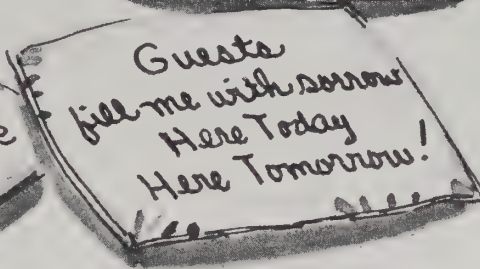 Guests
fill me with sorrow
Here Today
Here Tomorrow!